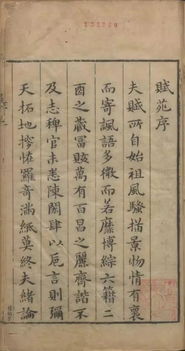 賦苑序
夫賦所自始祖風騷描景物情有裏
而寄諷語多微而若靡博綜六籍二
酉之藏富賅萬有百昌之麗齊諧不
及志稗官未悉陳闔肆以卮言則彌
天拓地摻恠羅奇滿紙莫終夫緒論